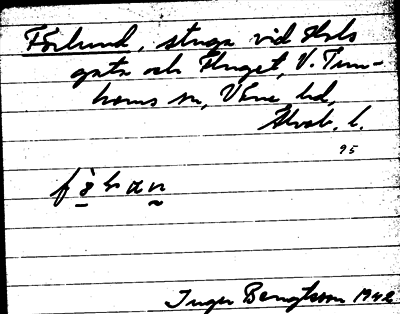 Forlund, stuga vid Hols
gata och Fluget, V. Tun-
hems sn, Väne hd,
Älvsb. l.
95
Inger Bengtsson 1942